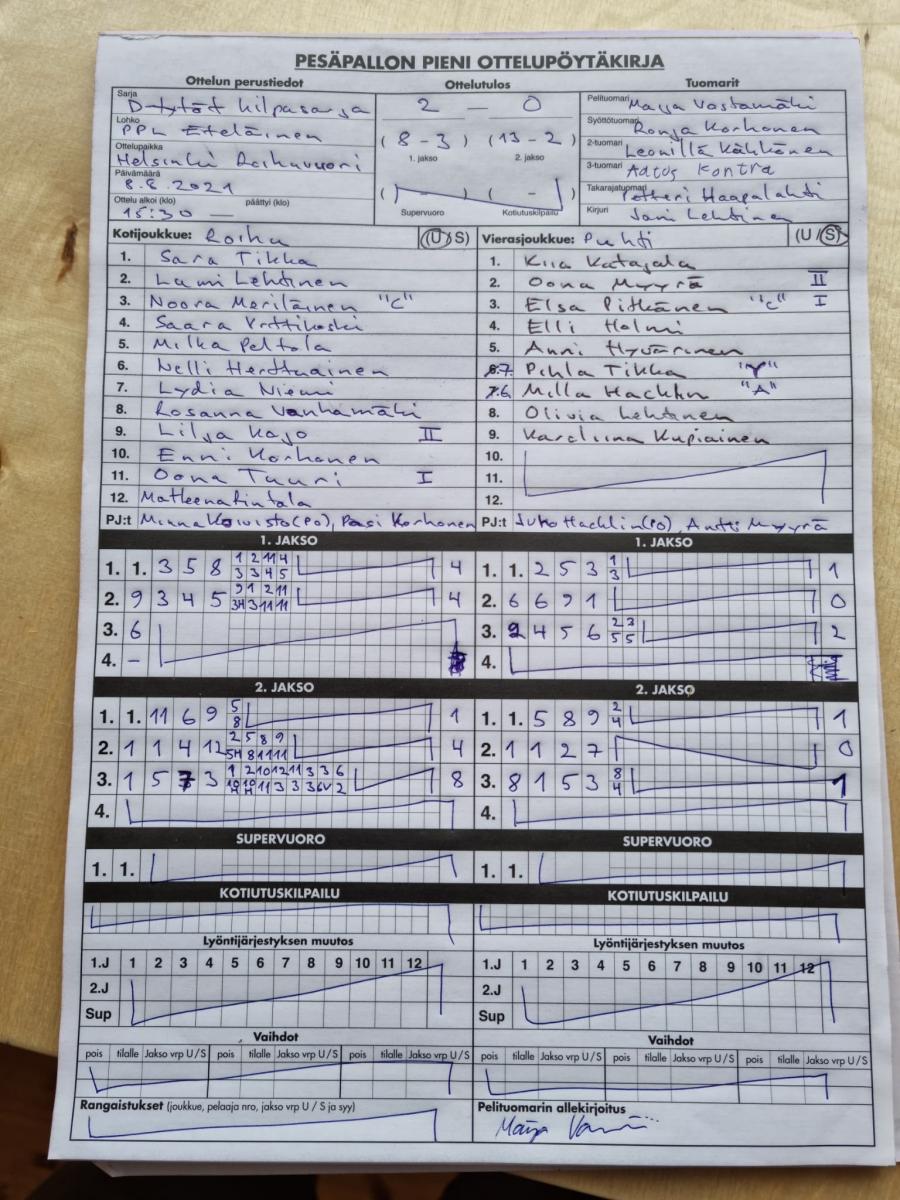 PESÄPALLON PIENI OTTELUPÖYTÄKIRJA
Ottelun perustiedot
Sarja
D-tytöt kilpasarja
Lohko
PPL Eteläinen
Ottelupaikka
Helsinki Roihuvuori
Päivämäärä
8.8.2021
Ottelu alkoi (klo) päättyi (klo)
15:30 —
Ottelutulos
2 — 0
( 8 - 3 ) ( 13 - 2 )
1. jakso 2. jakso
( - ) ( - )
Supervuoro Kotiutuskilpailu
Tuomarit
Pelituomari Maija Vastamäki
Syöttötuomari Ronja Korhonen
2-tuomari Leonilla Kähkönen
3-tuomari Aatos Kontra
Takarajatuomari Petteri Haapalahti
Kirjuri Jani Lehtinen
Kotijoukkue: Roihu (U/S)
1. Sara Tikka
2. Lumi Lehtinen
3. Noora Meriläinen "C"
4. Saara
5. Milka Peltola
6. Nelli Herttuainen
7. Lydia Niemi
8. Rosanna Vanhamäki
9. Lilja Kajo II
10. Enni Korhonen
11. Oona Tuuri I
12. Matleena Rintala
PJ:t Minna Koivisto (PO), Pasi Korhonen
Vierasjoukkue: Puhti (U/S)
1. Kiia Katajala
2. Oona Myyrä II
3. Elsa Pitkänen "C" I
4. Elli Holmi
5. Anni Hyvärinen
7. Pihla Tikka "Y"
6. Milla Hacklin "A"
8. Olivia Lehtinen
9. Karoliina Kupiainen
10.
11.
12.
PJ:t Juko Hacklin (PO), Antti Myyrä
1. JAKSO
1. 1. 3 5 8 1 2 11 4 4
3 3 4 5
2. 9 3 4 5 9 1 2 11 4
3H 3 11 11
3. 6
4. –
1. JAKSO
1. 1. 2 5 3 1 1
3
2. 6 6 9 1 0
3. 2 4 5 6 2 3 2
5 5
4.
2. JAKSO
1. 1. 11 6 9 5 1
8
2. 1 1 4 12 2 5 8 9 4
5H 8 11 11
3. 1 5 7 3 1 2 10 12 11 3 3 6 8
10H 10H 11 3 3 3 6V 2
4.
2. JAKSO
1. 1. 5 8 9 2 1
4
2. 1 1 2 7 0
3. 8 1 5 3 8 1
4
4.
SUPERVUORO
1. 1.
SUPERVUORO
1. 1.
KOTIUTUSKILPAILU
KOTIUTUSKILPAILU
Lyöntijärjestyksen muutos
1.J 1 2 3 4 5 6 7 8 9 10 11 12
2.J
Sup
Lyöntijärjestyksen muutos
1.J 1 2 3 4 5 6 7 8 9 10 11 12
2.J
Sup
Vaihdot
pois tilalle Jakso vrp U/S pois tilalle Jakso vrp U/S pois tilalle Jakso vrp U/S
Vaihdot
pois tilalle Jakso vrp U/S pois tilalle Jakso vrp U/S pois tilalle Jakso vrp U/S
Rangaistukset (joukkue, pelaaja nro, jakso vrp U / S ja syy)
Pelituomarin allekirjoitus
Maija